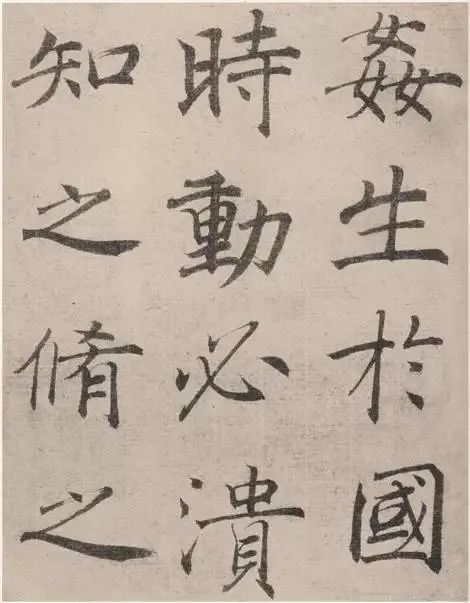 姦生於國
時動必潰
知之脩之